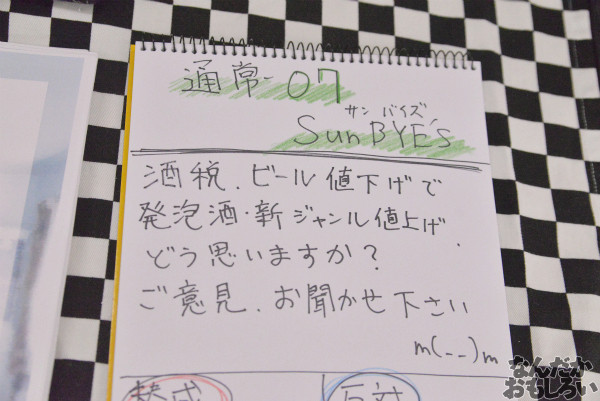 通常-07
サンバイズ
SunBYE's
酒税、ビール値下げで
発泡酒・新ジャンル値上げ
どう思いますか?
ご意見、お聞かせ下さい
m(--)m
賛成
反対
なんだか
おもしろい